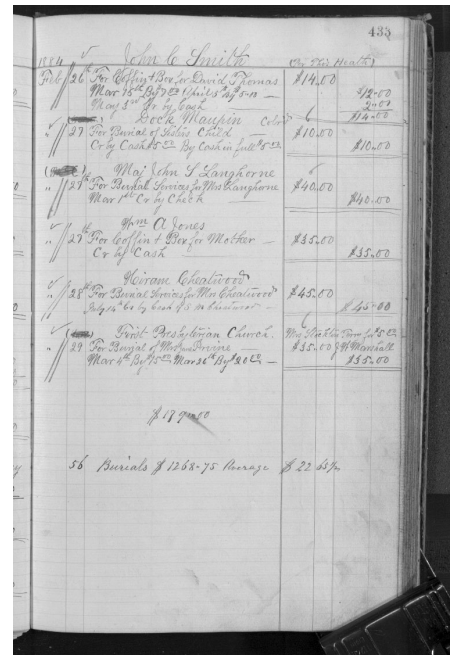 433
1884 John C Smith
Feb 26th For Coffin & Box for David Thomas $14.00
Mar 15th By $7.00 April 5th By $5.00 — $12.00
May 3rd Cr by Cash 2.00
Dock Maupin Cold $14.00
" 27 For Burial of Child — $10.00
Cr by Cash $5.00 By Cash in full $5.00 $10.00
Maj John S Langhorne
" 27th For Burial Services for Mrs Langhorne $40.00
Mar 1st Cr by Check — $40.00
Wm A Jones
" 27th For Coffin & Box for Mother — $35.00
Cr by Cash $35.00
Hiram Cheatwood
" 28th For Burial Services for Mrs Cheatwood $45.00
$45.00
First Presbyterian Church
" 29 For Burial of Mrs — $35.00 J W Marshall
Mar 4th By $15.00 Mar 26th By $20.00 — $35.00
56 Burials $1268-75 Average $22.65